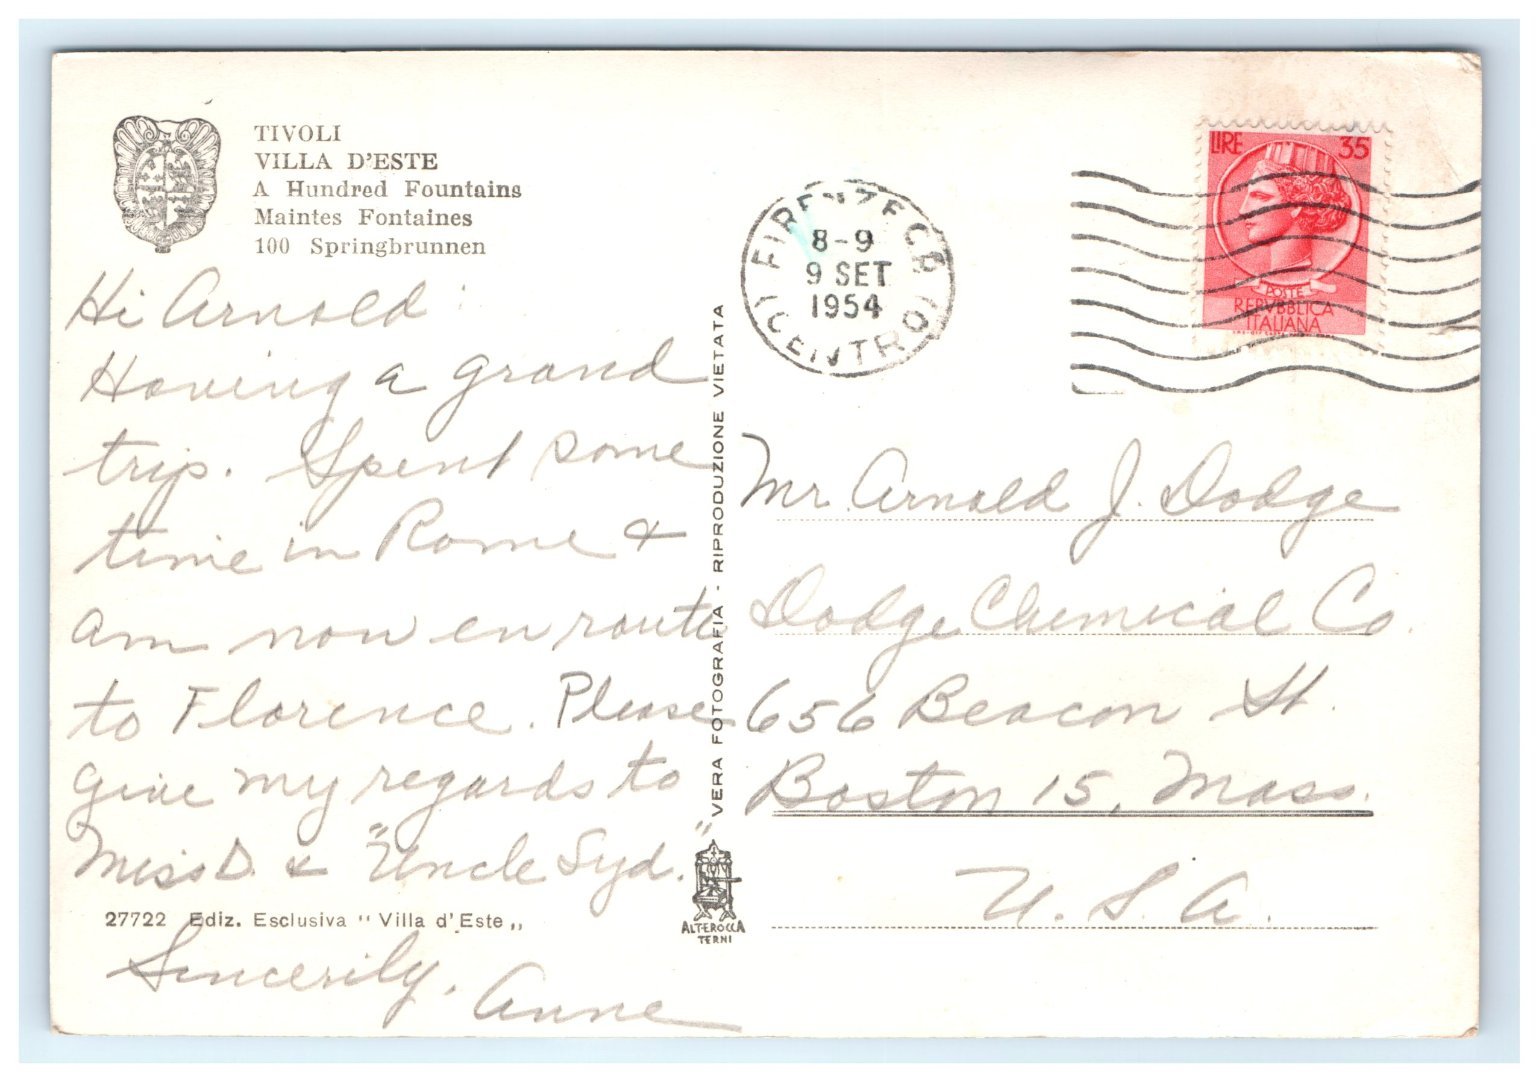 TIVOLI
VILLA D'ESTE
A Hundred Fountains
Maintes Fontaines
100 Springbrunnen
Hi Arnold:
Having a grand
trip. Spent some
time in Rome &
am now en route
to Florence. Please
give my regards to
Miss D. & "Uncle Syd."
Sincerily, Anne
27722 Ediz. Esclusiva "Villa d'Este„
VERA FOTOGRAFIA - RIPRODUZIONE VIETATA
ALTEROCCA
TERNI
FIRENZE
(CENTRO)
8-9
9 SET
1954
LIRE 35
POSTE
REPVBBLICA
ITALIANA
Mr. Arnold J. Dodge
Dodge Chemical Co.
656 Beacon St.
Boston 15, Mass.
U.S.A.